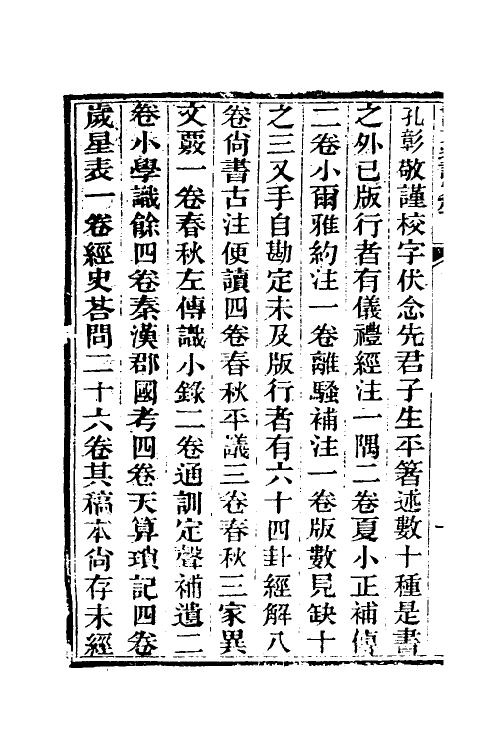 孔彰敬謹校字伏念先君子生平箸述數十種是書
之外已版行者有儀禮經注一隅二卷夏小正補傳
二卷小爾雅約注一卷離騷補注一卷版數見缺十
之三又手自勘定未及版行者有六十四卦經解八
卷尙書古注便讀四卷春秋平議三卷春秋三家異
文覈一卷春秋左傳識小錄二卷通訓定聲補遺二
卷小學識餘四卷秦漢郡國考四卷天算瑣記四卷
歲星表一卷經史荅問二十六卷其稿本尙存未經